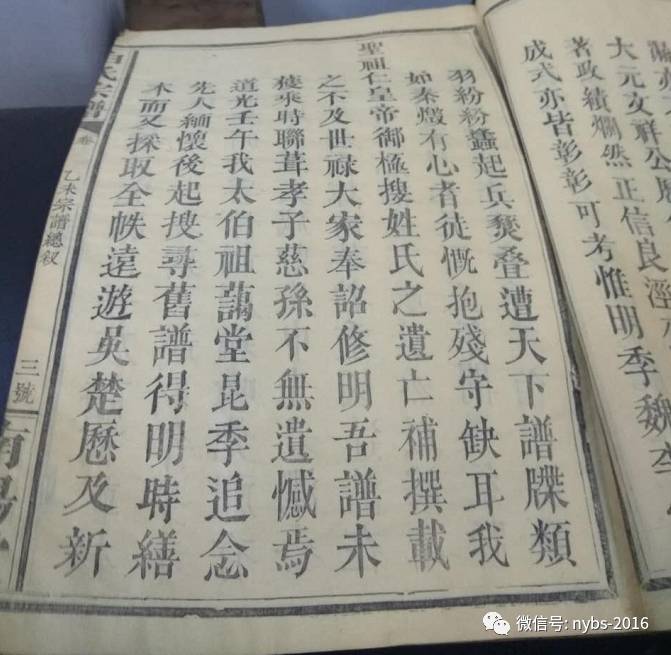 大元文祥公
著政績爛然正信良涇
成式亦皆彰彰可考惟明季魏李
羽紛紛蠭起兵燹叠遭天下譜牒類
如秦燬有心者徒慨抱殘守缺耳我
聖祖仁皇帝御極搜姓氏之遺亡補撰載
之不及世祿大家奉詔修明吾譜未
獲乘時聯葺孝子慈孫不無遺憾焉
道光壬午我太伯祖藹堂昆季追念
先人緬懷後起搜尋舊譜得明時繕
本而又採取全帙遠遊吳楚厯及新
氏宗譜 卷 乙未宗譜總叙 三號 南陽
微信号: nybs-2016